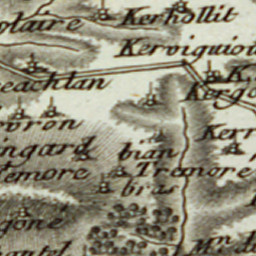 olaire
Kerhollit
Kerviguiou
K.
eachlan
Kergo
vron
Kerr
ingard
bian
temore
Tremore
bras
gone
Mn. d
antel